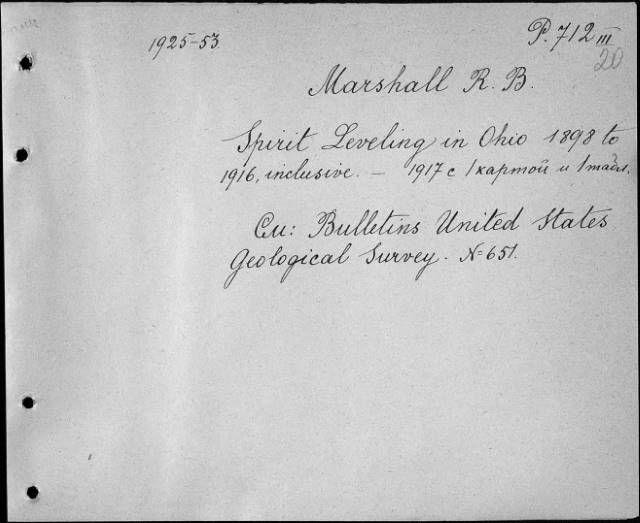 1925-53.
P. 712 III
20
Marshall R. B.
Spirit Leveling in Ohio 1898 to
1916, inclusive. – 1917 с 1 картой и 1 табл.
См: Bulletins United States
Geological Survey. N=651.